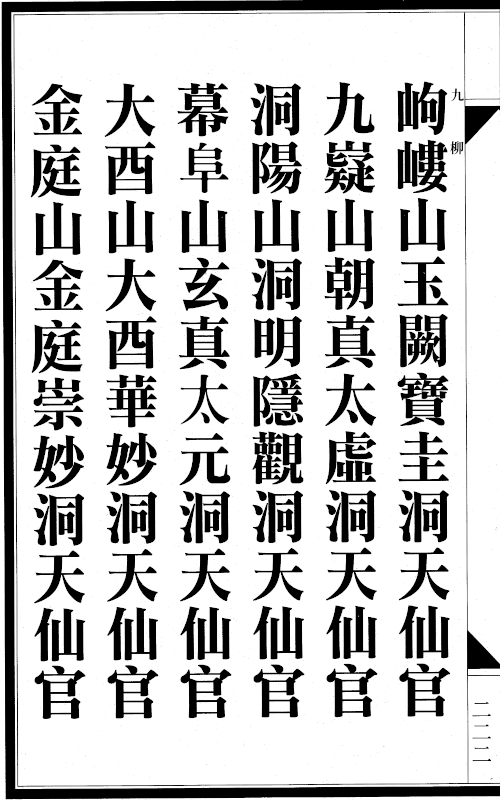 九 柳
岣嶁山玉闕寶圭洞天仙官
九嶷山朝真太虛洞天仙官
洞陽山洞明隱觀洞天仙官
幕阜山玄真太元洞天仙官
大酉山大酉華妙洞天仙官
金庭山金庭崇妙洞天仙官
二二二